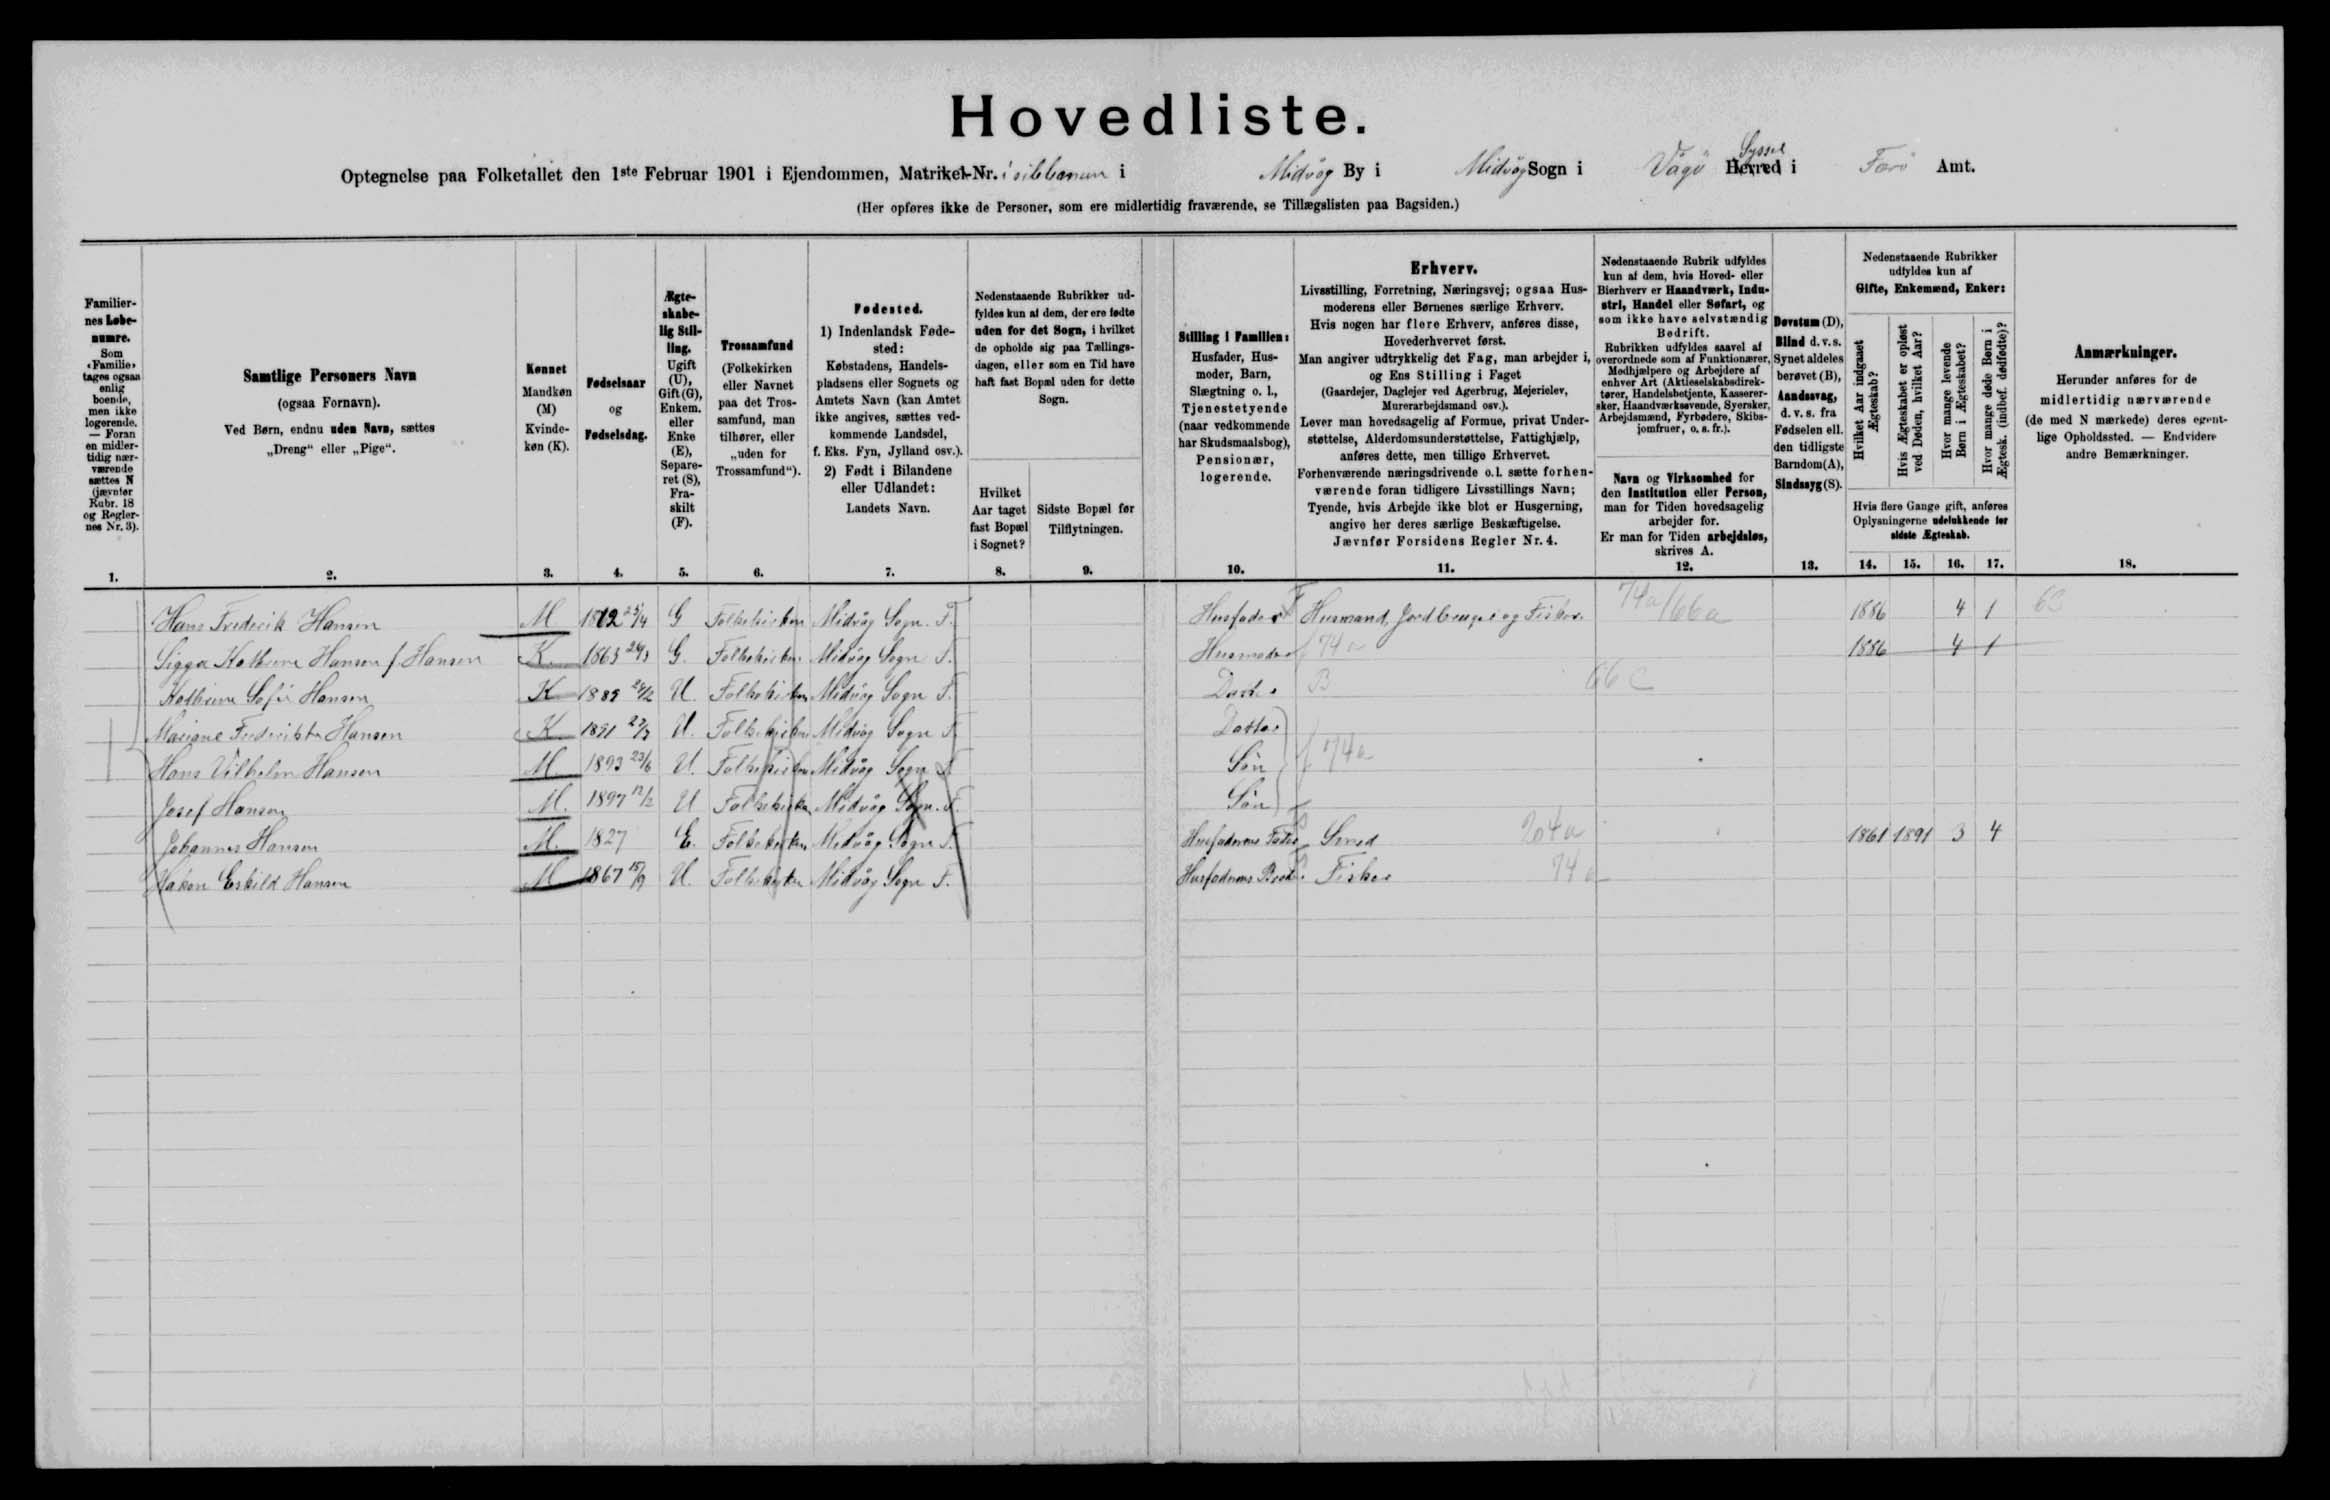 Hovedliste.
Optegnelse paa Folketallet den 1ste Februar 1901 i Ejendommen, Matrikel-Nr. i Midvåg By i Midvåg Sogn i Vågö Herred Syssel i Færö Amt.
(Her opføres ikke de Personer, som ere midlertidig fraværende, se Tillægslisten paa Bagsiden.)
Familiernes Løbenumre.
Som «Familie» tages ogsaa enlig boende, men ikke logerende. — Foran en midlertidig nærværende sættes N (jævnfør Rubr. 18 og Reglernes Nr. 3).
1.
Samtlige Personers Navn
(ogsaa Fornavn).
Ved Børn, endnu uden Navn, sættes
„Dreng“ eller „Pige“.
2.
Kønnet
Mandkøn (M)
Kvindekøn (K).
3.
Fødselsaar
og
Fødselsdag.
4.
Ægteskabelig Stilling.
Ugift (U), Gift (G), Enkem. eller Enke (E), Separeret (S), Fraskilt (F).
5.
Trossamfund
(Folkekirken eller Navnet paa det Trossamfund, man tilhører, eller „uden for Trossamfund“).
6.
Fødested.
1) Indenlandsk Fødested:
Købstadens, Handelspladsens eller Sognets og Amtets Navn (kan Amtet ikke angives, sættes vedkommende Landsdel, f. Eks. Fyn, Jylland osv.).
2) Født i Bilandene eller Udlandet:
Landets Navn.
7.
Nedenstaaende Rubrikker udfyldes kun af dem, der ere fødte uden for det Sogn, i hvilket de opholde sig paa Tællingsdagen, eller som en Tid have haft fast Bopæl uden for dette Sogn.
Hvilket Aar taget fast Bopæl i Sognet?
8.
Sidste Bopæl før Tilflytningen.
9.
Stilling i Familien:
Husfader, Husmoder, Barn, Slægtning o. l., Tjenestetyende (naar vedkommende har Skudsmaalsbog), Pensionær, logerende.
10.
Erhverv.
Livsstilling, Forretning, Næringsvej; ogsaa Husmoderens eller Børnenes særlige Erhverv.
Hvis nogen har flere Erhverv, anføres disse, Hovederhvervet først.
Man angiver udtrykkelig det Fag, man arbejder i, og Ens Stilling i Faget
(Gaardejer, Daglejer ved Agerbrug, Mejerielev, Murerarbejdsmand osv.).
Lever man hovedsagelig af Formue, privat Understøttelse, Alderdomsunderstøttelse, Fattighjælp, anføres dette, men tillige Erhvervet.
Forhenværende næringsdrivende o.l. sætte forhenværende foran tidligere Livsstillings Navn;
Tyende, hvis Arbejde ikke blot er Husgerning, angive her deres særlige Beskæftigelse.
Jævnfør Forsidens Regler Nr. 4.
11.
Nedenstaaende Rubrik udfyldes kun af dem, hvis Hoved- eller Bierhverv er Haandværk, Industri, Handel eller Søfart, og som ikke have selvstændig Bedrift.
Rubrikken udfyldes saavel af overordnede som af Funktionærer, Medhjælpere og Arbejdere af enhver Art (Aktieselskabsdirektører, Handelsbetjente, Kasserersker, Haandværkssvende, Syersker, Arbejdsmænd, Fyrbødere, Skibsjomfruer, o. s. fr.).
Navn og Virksomhed for den Institution eller Person, man for Tiden hovedsagelig arbejder for.
Er man for Tiden arbejdsløs, skrives A.
12.
Døvstum (D),
Blind d. v. s. Synet aldeles berøvet (B),
Aandssvag, d. v. s. fra Fødselen ell. den tidligste Barndom (A),
Sindssyg (S).
13.
Nedenstaaende Rubrikker udfyldes kun af
Gifte, Enkemænd, Enker:
Hvilket Aar indgaaet Ægteskab?
Hvis Ægteskabet er opløst ved Døden, hvilket Aar?
Hvor mange levende Børn i Ægteskabet?
Hvor mange døde Børn i Ægtesk. (indbef. dødfødte)?
Hvis flere Gange gift, anføres Oplysningerne udelukkende for sidste Ægteskab.
14. 15. 16. 17.
Anmærkninger.
Herunder anføres for de midlertidig nærværende (de med N mærkede) deres egentlige Opholdssted. — Endvidere andre Bemærkninger.
18.
Hans Frederik Hansen M 25/4 G Folkekirken Midvåg Sogn. F. Husfader Husmand, Jordbruger og Fisker. 74a/66a 1886 4 1
Sigga Kathrine Hansen f. Hansen K. 1863 G. Folkekirken Midvåg Sogn F. Husmoder 74a 1886 4 1
Kathrine Sofie Hansen K U. Folkekirken Midvåg Sogn F. Datter B 66 C
Mariane Frederikke Hansen K. 1891 U. Folkekirken Midvåg Sogn F. Datter
Hans Vilhelm Hansen M. 1893 23/6 U. Folkekirken Midvåg Sogn F. Søn 74a
Josef Hansen M. 1897 12/2 U Folkekirken Midvåg Sogn. F. Søn
Johannes Hansen M. 1827 E. Folkekirken Midvåg Sogn F. Husfaderens Fader Smed 204a 1861 1891 3 4
Hakon Eskild Hansen M 1867 15/9 U. Folkekirken Midvåg Sogn F. Husfaderens Broder Fisker 74a